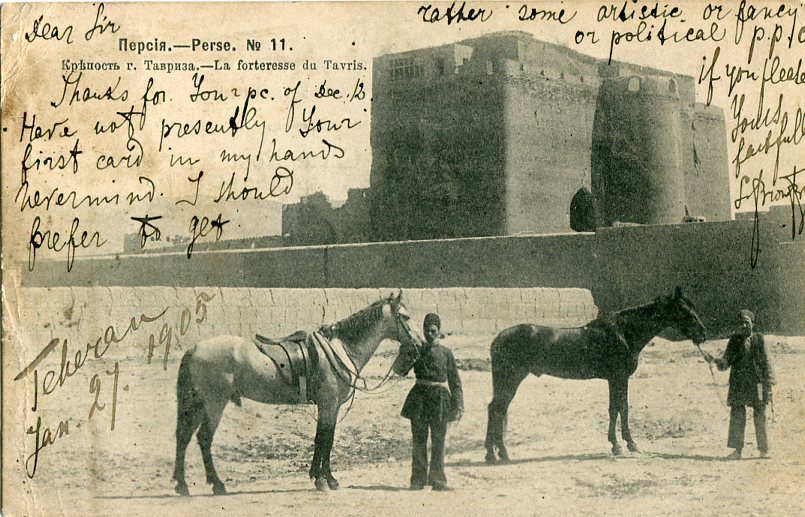 Dear Sir
Персія.—Perse. № 11.
Крѣпость г. Тавриза.—La forteresse du Tavris.
Thanks for Your pc. of Dec. 12
Have not presently Your
first card in my hands
nevermind. I should
prefer to get
rather some artistic or fancy
or political p.p.c
if you please
Yours
faithfully
Teheran
Jan. 27. 1905